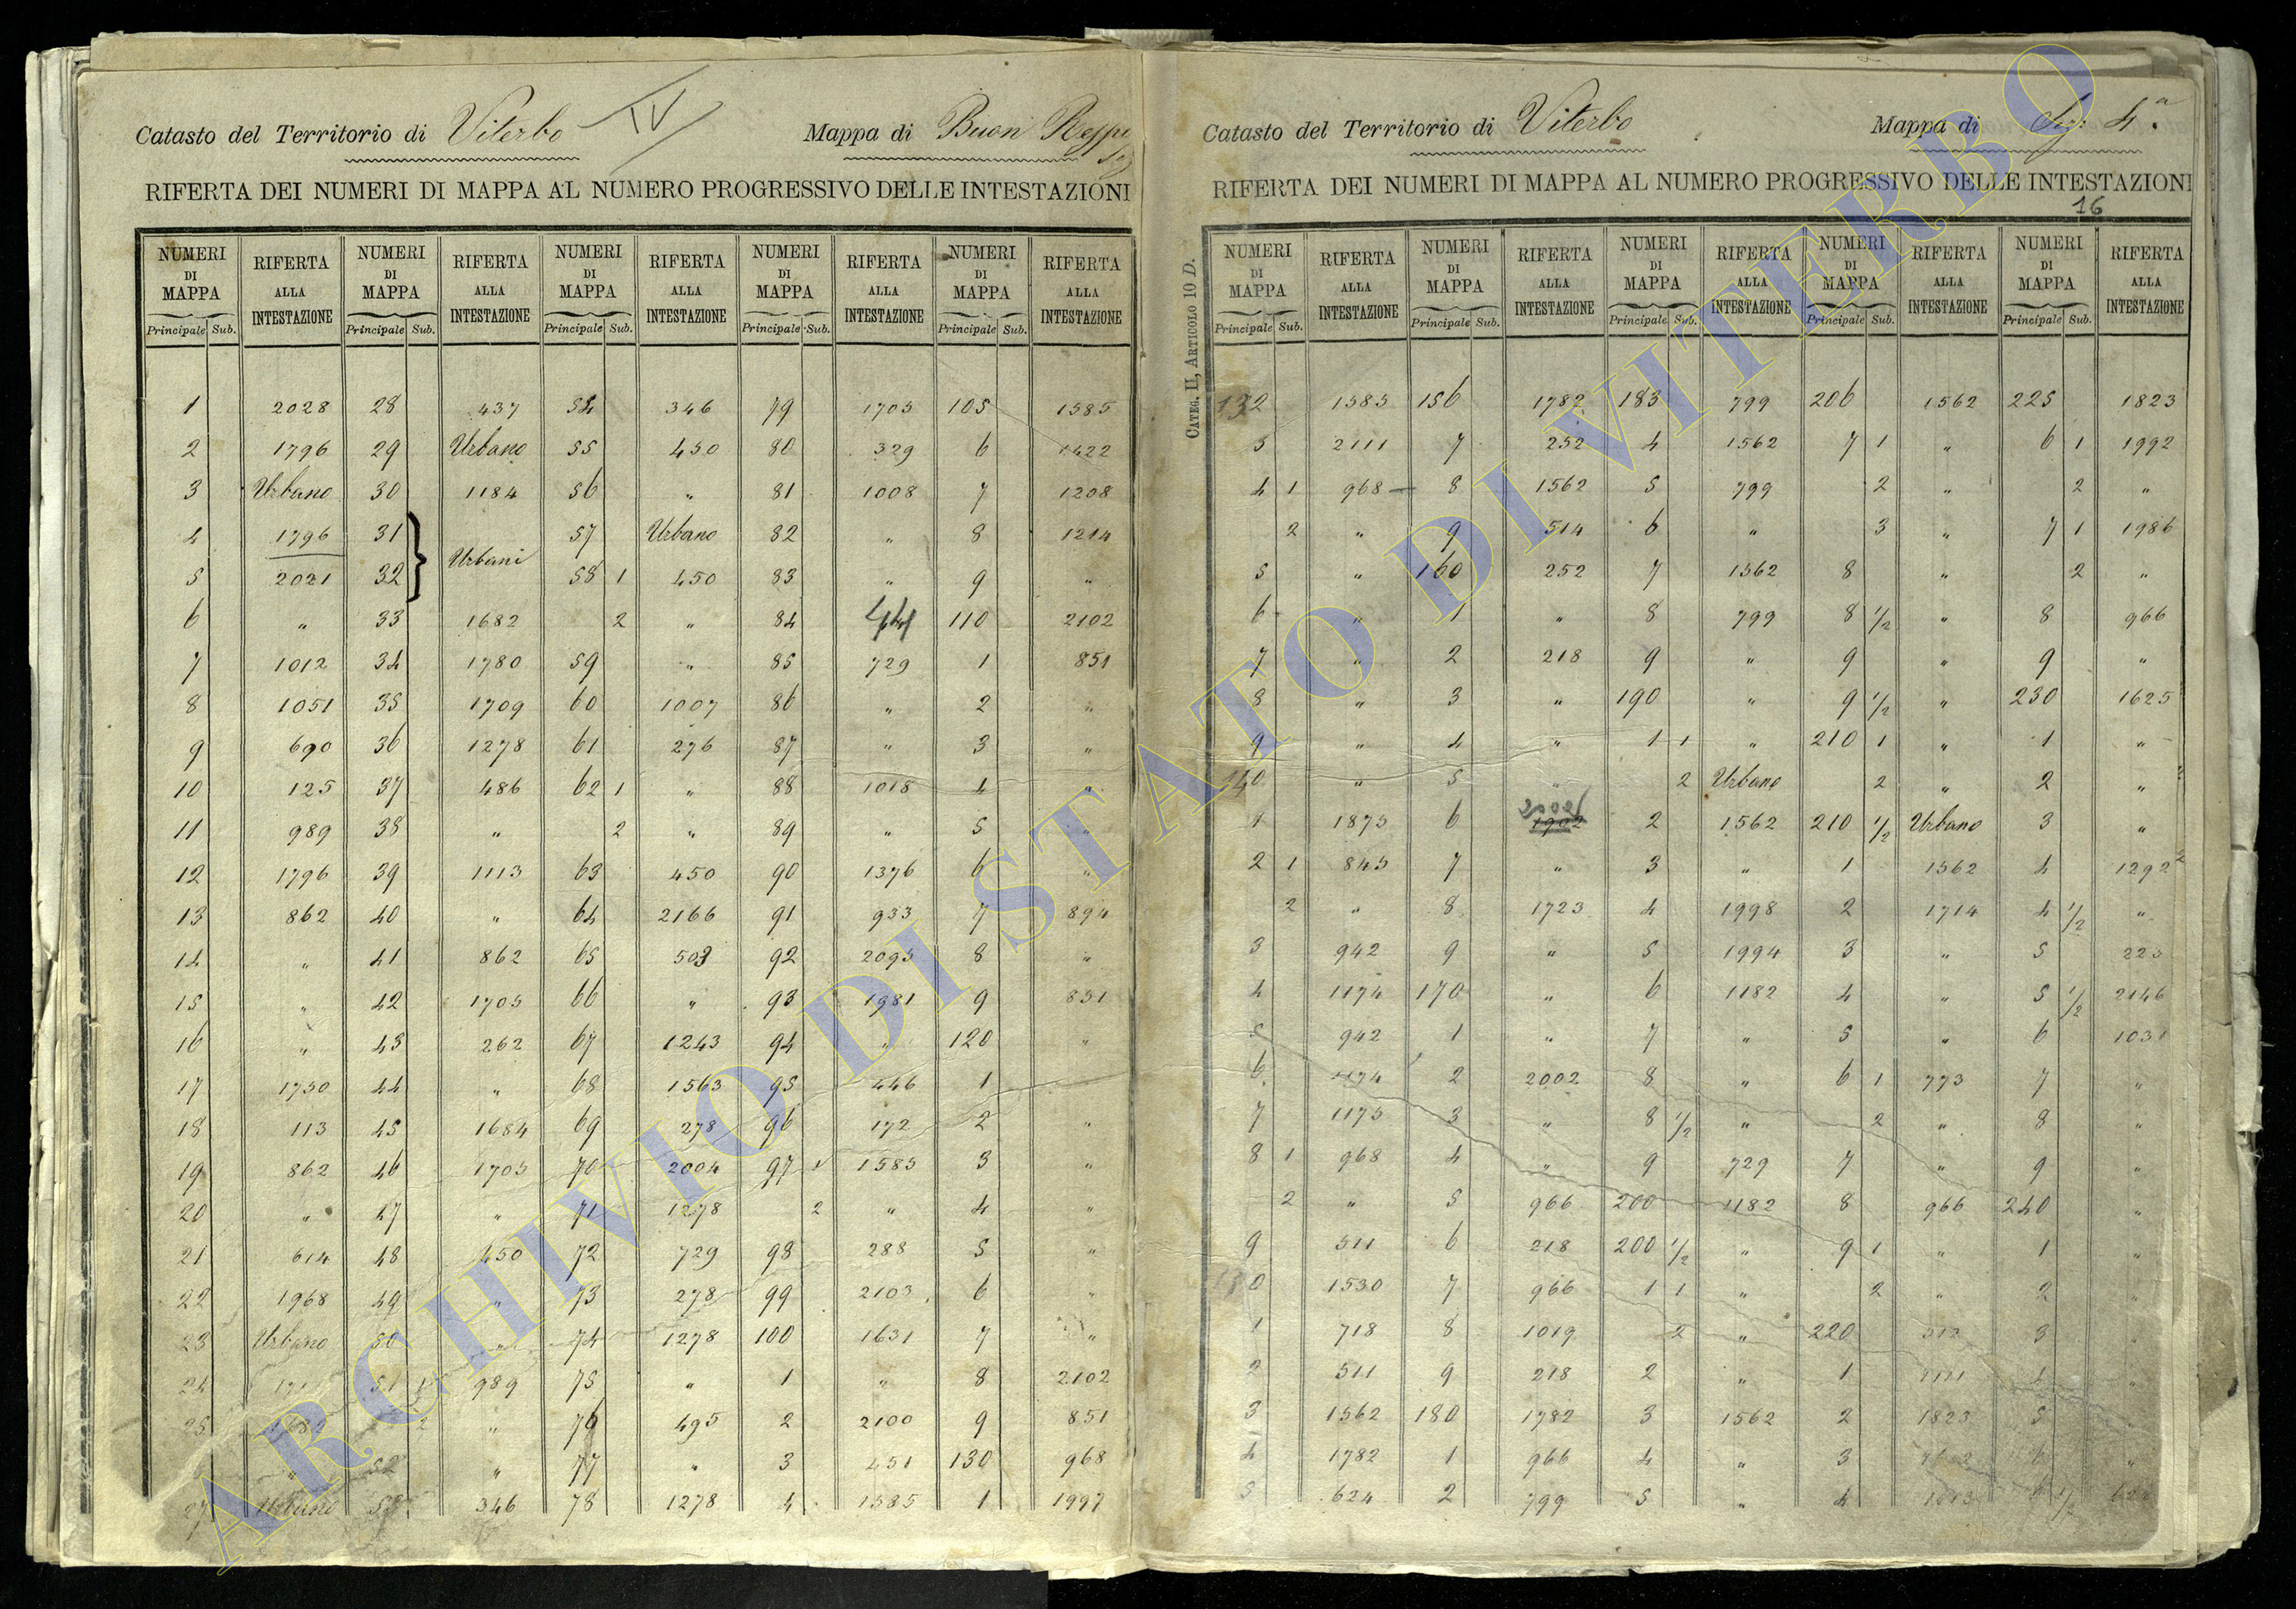 Catasto del Territorio di Viterbo IV Mappa di Buon Respi
RIFERTA DEI NUMERI DI MAPPA AL NUMERO PROGRESSIVO DELLE INTESTAZIONI
NUMERI DI MAPPA RIFERTA ALLA INTESTAZIONE NUMERI DI MAPPA RIFERTA ALLA INTESTAZIONE NUMERI DI MAPPA RIFERTA ALLA INTESTAZIONE NUMERI DI MAPPA RIFERTA ALLA INTESTAZIONE NUMERI DI MAPPA RIFERTA ALLA INTESTAZIONE
Principale Sub. Principale Sub. Principale Sub. Principale Sub. Principale Sub.
1 2028 28 437 54 346 79 1705 105 1585
2 1796 29 Urbano 55 450 80 329 6 1422
3 Urbano 30 1184 56 " 81 1008 7 1208
4 1796 31 } Urbani 57 Urbano 82 " 8 1214
5 2021 32 58 1 450 83 " 9 "
6 " 33 1682 2 " 84 44 110 2102
7 1012 34 1780 59 " 85 729 1 851
8 1051 35 1709 60 1007 86 " 2 "
9 690 36 1278 61 276 87 " 3 "
10 125 37 486 62 1 " 88 1018 4 "
11 989 38 " 2 " 89 " 5 "
12 1796 39 1113 63 450 90 1376 6 "
13 862 40 " 64 2166 91 933 7 894
14 " 41 862 65 503 92 2095 8 "
15 " 42 1705 66 " 93 1981 9 851
16 " 43 262 67 1243 94 " 120 "
17 1750 44 " 68 1563 95 446 1
18 113 45 1684 69 278 96 172 2 "
19 862 46 1705 70 2004 97 1 1585 3 "
20 " 47 " 71 1278 2 " 4 "
21 614 48 450 72 729 98 288 5 "
22 1968 49 " 73 278 99 2103 6 "
23 Urbano 50 " 74 1278 100 1631 7 "
24 51 1 989 75 " 1 " 8 2102
25 1682 2 " 76 495 2 2100 9 851
" 52 " 77 " 3 451 130 968
27 Urbano 53 346 78 1278 4 1585 1 1997
Catasto del Territorio di Viterbo Mappa di Sez: 4.a
RIFERTA DEI NUMERI DI MAPPA AL NUMERO PROGRESSIVO DELLE INTESTAZIONI
16
CATEG. II, ARTICOLO 10 D.
NUMERI DI MAPPA RIFERTA ALLA INTESTAZIONE NUMERI DI MAPPA RIFERTA ALLA INTESTAZIONE NUMERI DI MAPPA RIFERTA ALLA INTESTAZIONE NUMERI DI MAPPA RIFERTA ALLA INTESTAZIONE NUMERI DI MAPPA RIFERTA ALLA INTESTAZIONE
Principale Sub. Principale Sub. Principale Sub. Principale Sub. Principale Sub.
132 1585 156 1782 183 799 206 1562 225 1823
3 2111 7 252 4 1562 7 1 " 6 1 1992
4 1 968 8 1562 5 799 2 " 2 "
2 " 9 514 6 " 3 " 7 1 1986
5 " 160 252 7 1562 8 " 2 "
6 " 1 " 8 799 8 1/2 " 8 966
7 " 2 218 9 " 9 " 9 "
8 " 3 " 190 " 9 1/2 " 230 1625
9 " 4 " 1 1 " 210 1 " 1 "
140 " 5 " 2 Urbano 2 " 2 "
1 1875 6 2002 1902 2 1562 210 1/2 Urbano 3 "
2 1 845 7 " 3 " 1 1562 4 1292
2 " 8 1723 4 1998 2 1714 4 1/2 "
3 942 9 " 5 1994 3 " 5 223
4 1174 170 " 6 1182 4 " 5 1/2 2146
5 942 1 " 7 " 5 " 6 1031
6 1174 2 2002 8 " 6 1 773 7 "
7 1175 3 " 8 1/2 " 2 " 8 "
8 1 968 4 " 9 729 7 " 9 "
2 " 5 966 200 1182 8 966 240 "
9 511 6 218 200 1/2 " 9 1 " 1 "
150 1530 7 966 1 1 " 2 " 2 "
1 718 8 1019 2 " 220 3 "
2 511 9 218 2 " 1 4 "
3 1562 180 1782 3 1562 2 1823 5 "
4 1782 1 966 4 " 3 6 "
5 624 2 799 5 " 4 6 1/2
ARCHIVIO DI STATO DI VITERBO